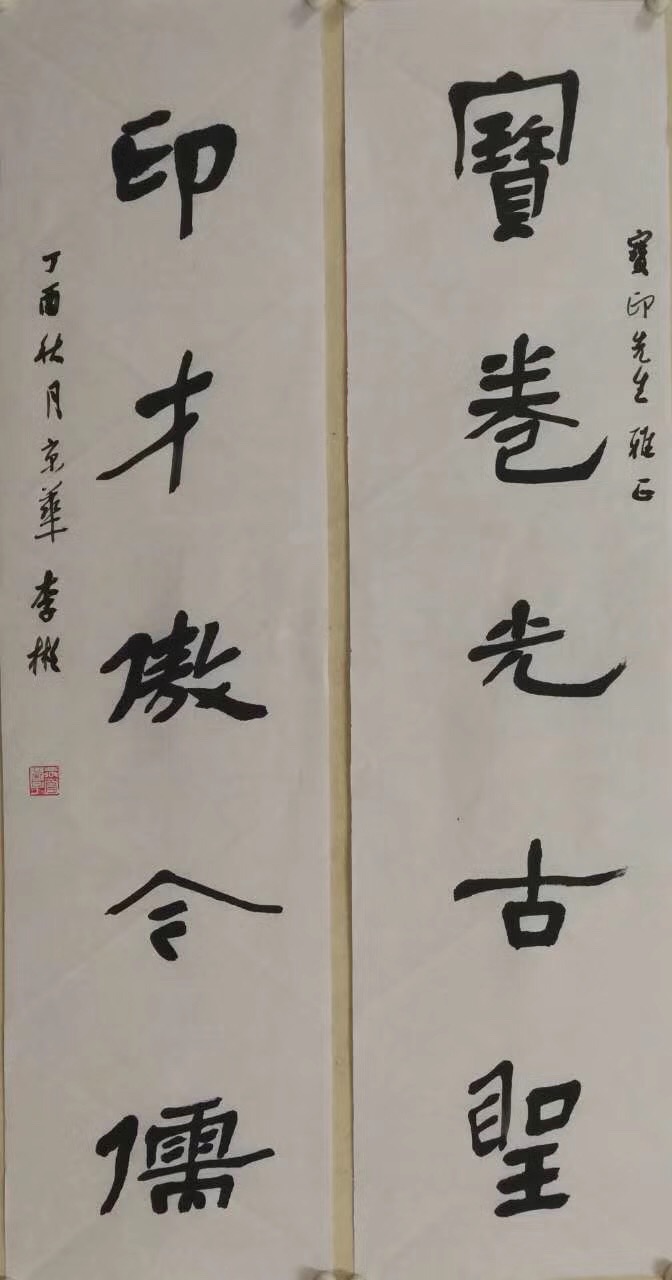 寶印先生雅正
寶卷光古聖
印才傲今儒
丁酉秋月京華李彬